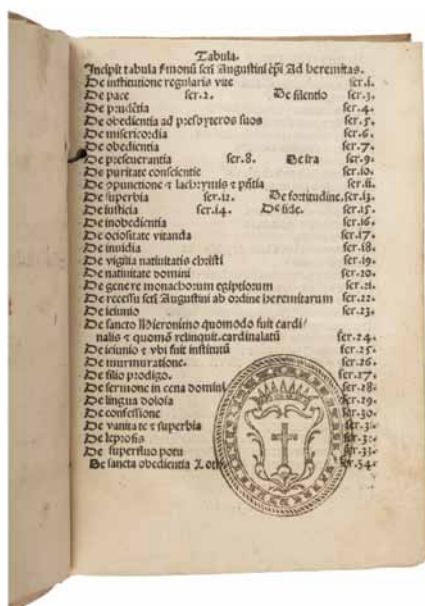 Tabula.
Incipit tabula sermonũ scti Augustini ep̃i Ad heremitas.
De institutione regularis vite ser.i.
De pace ser.2. De silentio ser.3.
De prudẽtia ser.4.
De obedientia ad presbyteros suos ser.5.
De misericordia ser.6.
De obedientia ser.7.
De perseuerantia ser.8. De ira ser.9.
De puritate conscientie ser.io.
De ꝯpunctione ⁊ lachrymis ⁊ pñtia ser.ii.
De superbia ser.i2. De fortitudine.ser.i3.
De iusticia ser.i4. De fide. ser.i5.
De inobedientia ser.i6.
De ociositate vitanda ser.i7.
De inuidia ser.i8.
De vigilia natiuitatis christi ser.i9.
De natiuitate domini ser.20.
De genere monachorum egiptiorum ser.2i.
De recessu scti Augustini ab ordine heremitarum ser.22.
De ieiunio ser.23.
De sancto Hieronimo quomodo fuit cardi/
nalis ⁊ quomõ relinquit.cardinalatũ ser.24.
De ieiunio ⁊ vbi fuit institutũ ser.25.
De murmuratione. ser.26.
De filio prodigo. ser.27.
De sermone in cena domini ser.28.
De lingua dolosa ser.29.
De confessione ser.30.
De vanitate ⁊ superbia
De leprosis
De superfluo potu ser.33.
De sancta obedientia ser.34.